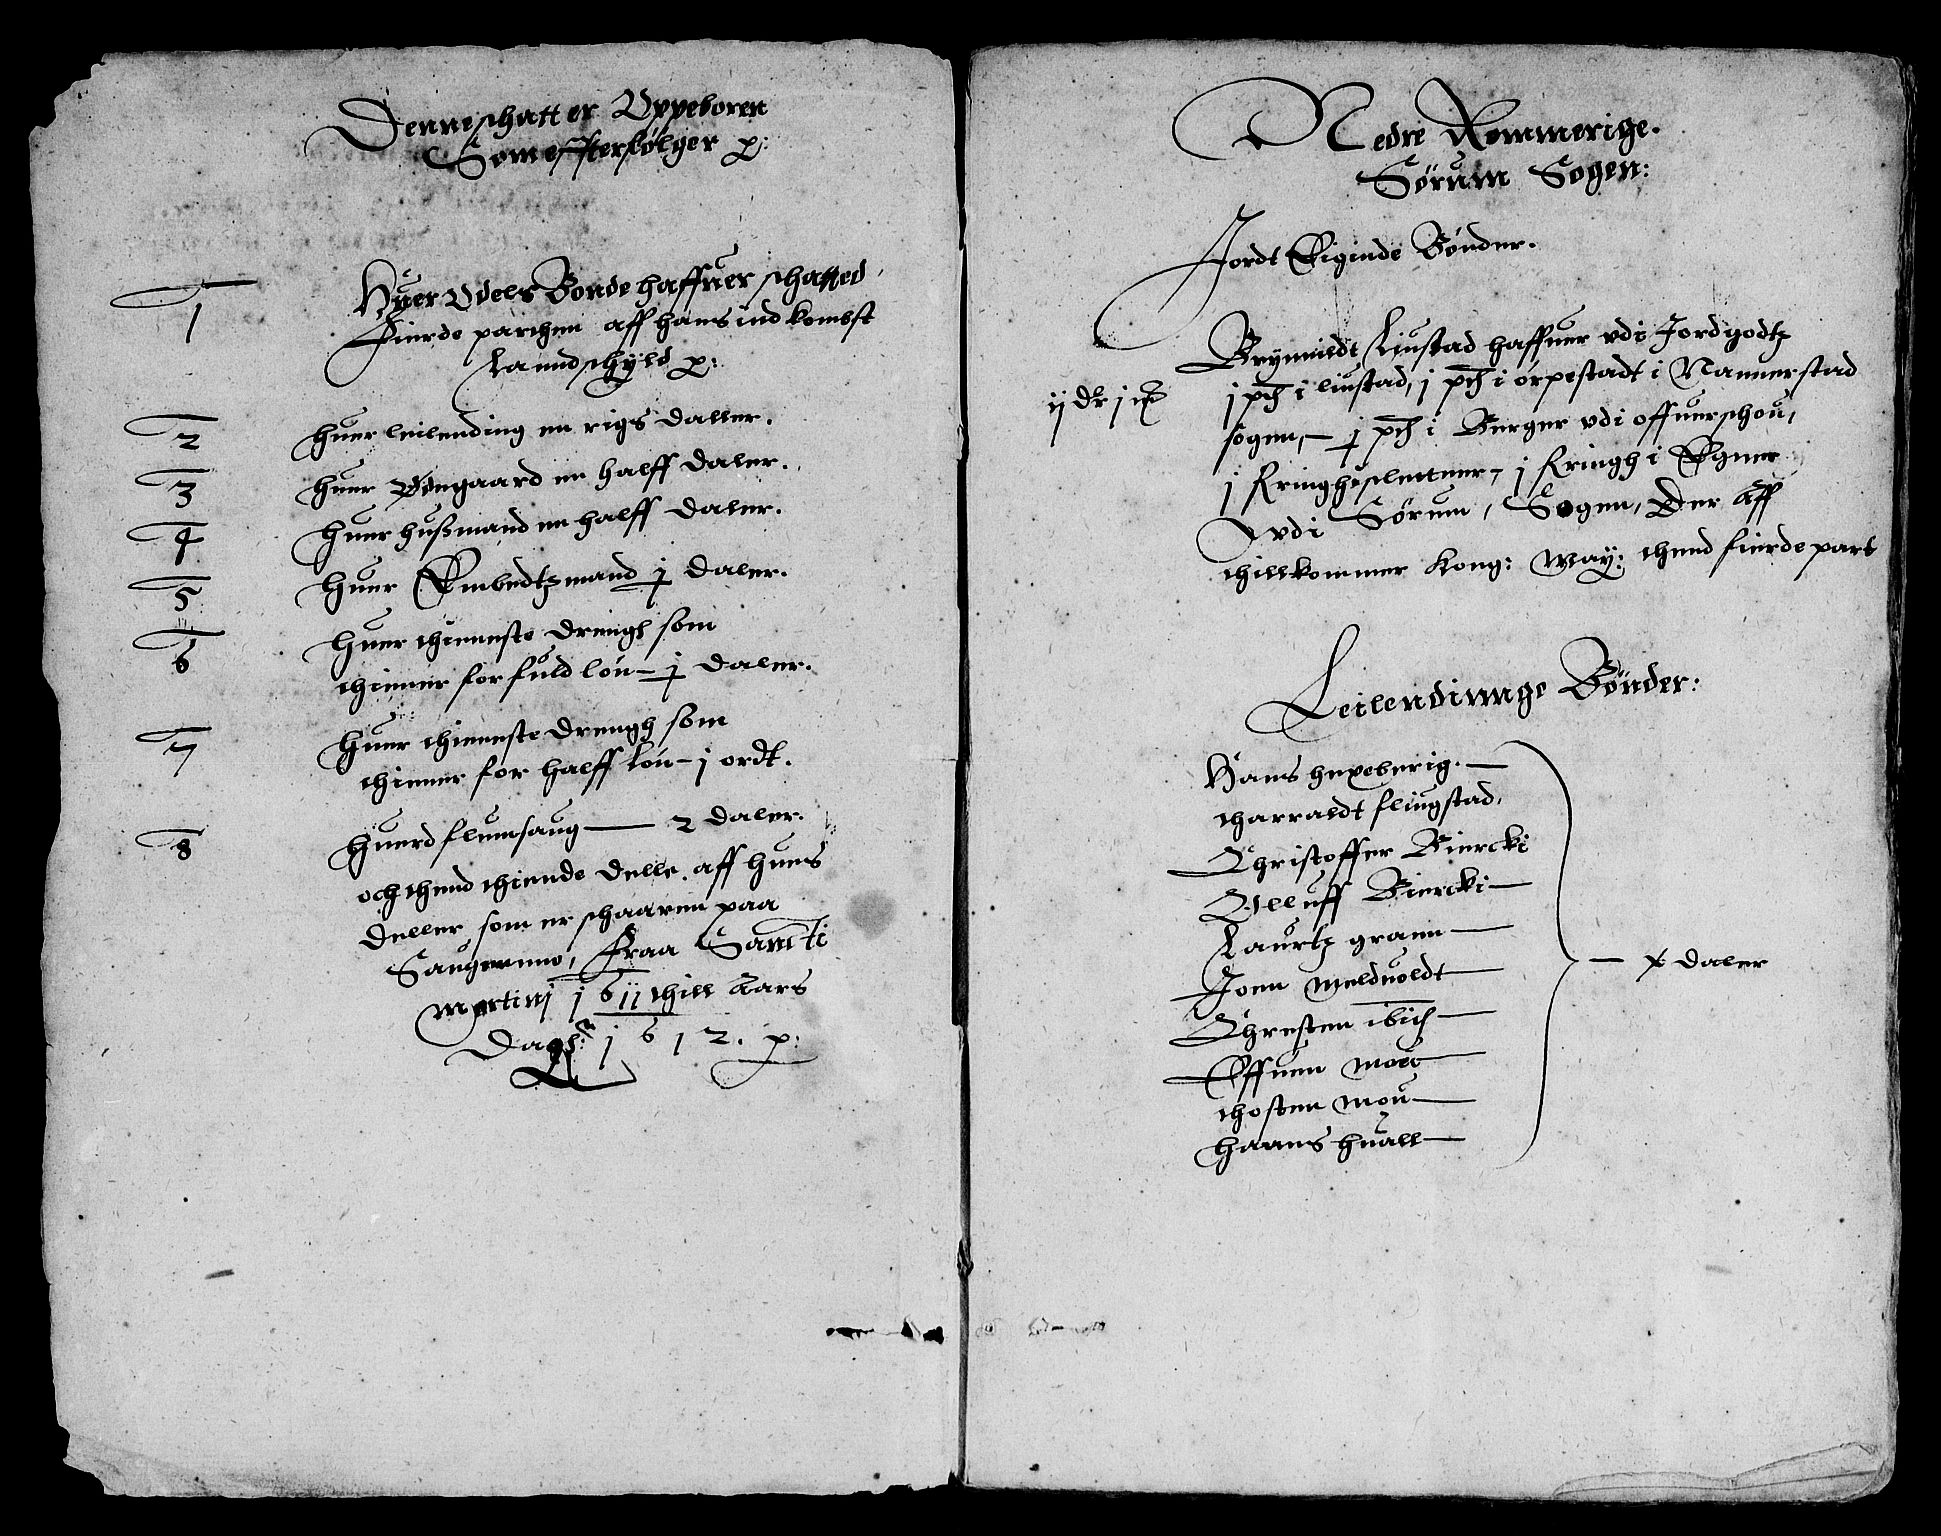 Denne schatt er Oppeboren
Som effterfølger p:
1 Huer Odels Bonde haffuer schatted
Fierde parthen aff hans indkombst
Lanndschyld p:
2 huer leilending en rigs daller.
3 huer Ødegaard en halff daler.
4 huer hussmand en halff daler.
5 huer Embedtzmand j daler.
6 huer thienneste drengh som
thienner for fuld løn – j daler.
7 huer thienneste drengh som
thienner for halff løn – j ordt.
8 huerd flumsaug — 2 daler.
och thend thiende delle aff hues
deller som er schaaren paa
Saugenne, fraa Sancti
Martini j 6 ij thill Aars
Dagh: j 6 1 2. p:
Nedre Rommerige.
Sørum Sogen:
Jordt Eiginde Bønder.
Brynnildt Liustad haffuer vdi Jordgodtz
ij dr j
j pd i liustad, j pd i orpestadt i Nannerstad
sogen, – j pd i Berger vdi offuerschou,
j Kringheslettner, j Kringh i Egner
vdi Sørum, Sogen, Der Aff
thillkommer Kong: May: thend fierdepart
Leilendinge Bønder:
Hans hexeberig. —
tharraldt flingstad,
Christoffer Biercki
Olluff Biercki —
Lauritz grann —
Joen Meldvoldt —
Chresten ibid —
Effuen moe —
thosten mou —
haans huall —
— x daler